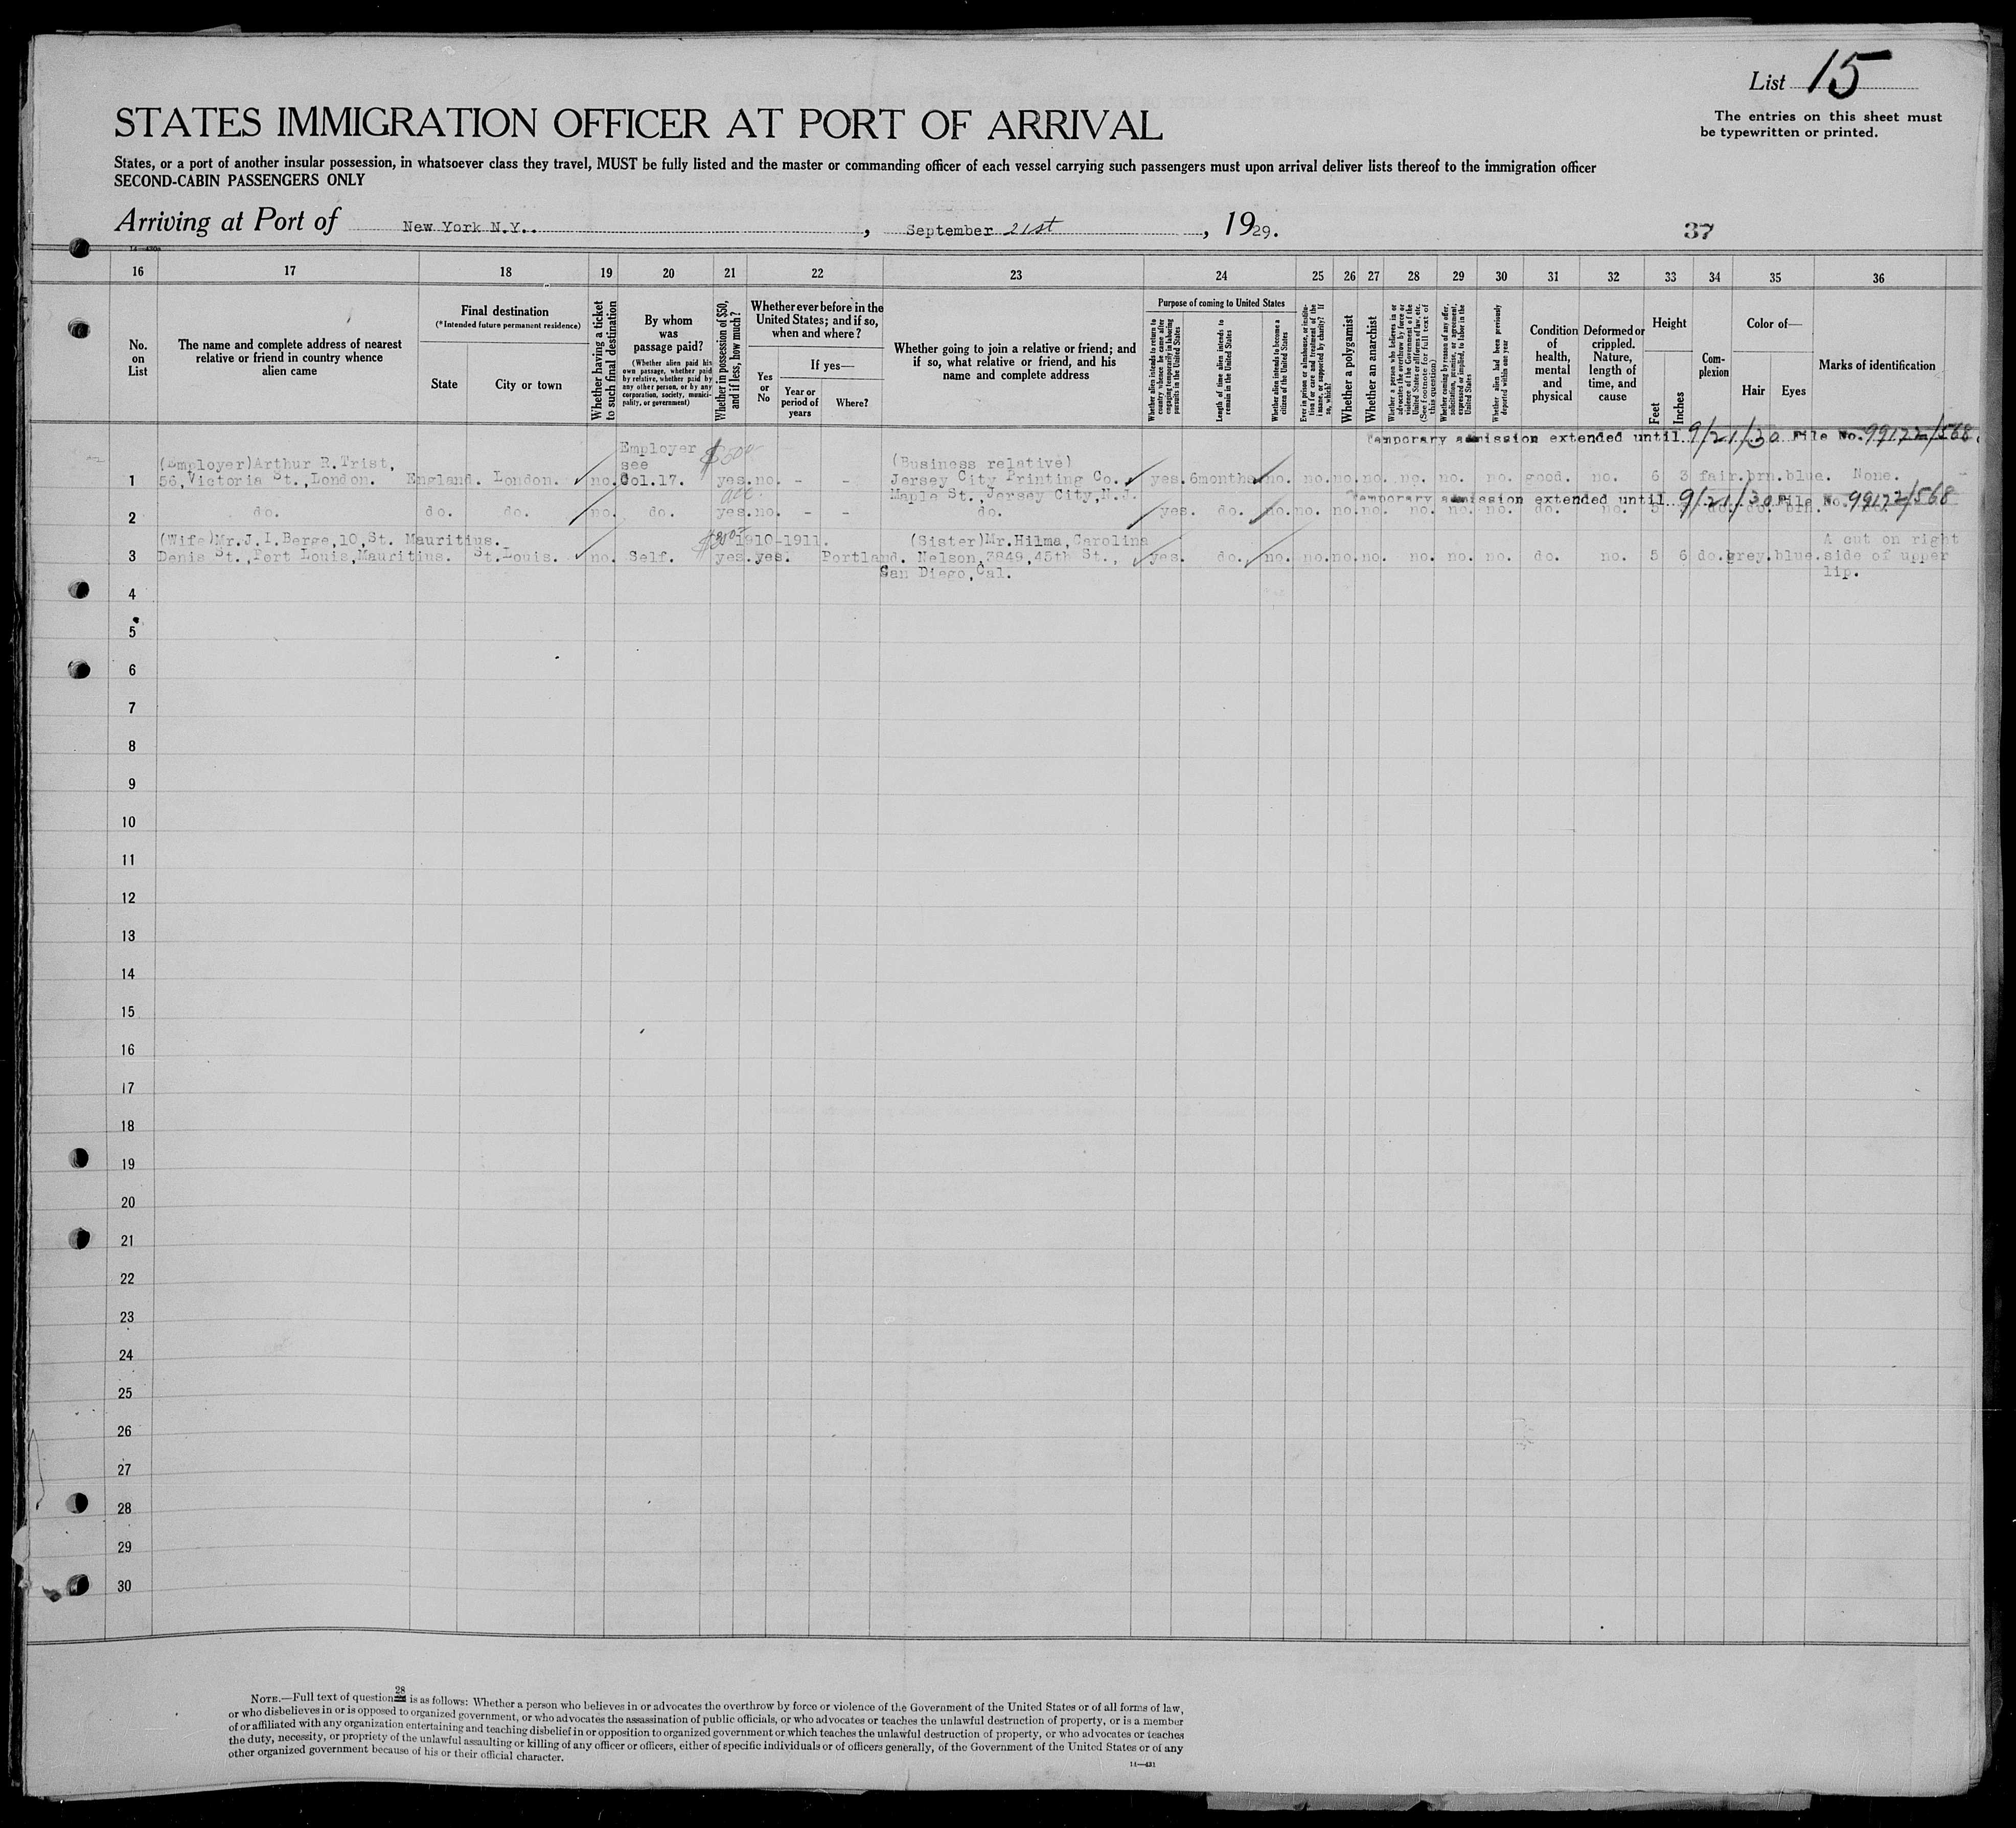 List 15
The entries on this sheet must
be typewritten or printed.
STATES IMMIGRATION OFFICER AT PORT OF ARRIVAL
States, or a port of another insular possession, in whatsoever class they travel, MUST be fully listed and the master or commanding officer of each vessel carrying such passengers must upon arrival deliver lists thereof to the immigration officer
SECOND-CABIN PASSENGERS ONLY
Arriving at Port of New York N.Y.. , September 21st , 1929.
37
16 17 18 19 20 21 22 23 24 25 26 27 28 29 30 31 32 33 34 35 36
No.
on
List
The name and complete address of nearest
relative or friend in country whence
alien came
Final destination
(*Intended future permanent residence)
State
City or town
Whether having a ticket
to such final destination
By whom
was
passage paid?
(Whether alien paid his
own passage, whether paid
by relative, whether paid by
any other person, or by any
corporation, society, munici-
pality, or government)
Whether in possession of $50,
and if less, how much?
Whether ever before in the
United States; and if so,
when and where?
Yes
or
No
If yes—
Year or
period of
years
Where?
Whether going to join a relative or friend; and
if so, what relative or friend, and his
name and complete address
Purpose of coming to United States
Whether alien intends to return to
country whence he came after
engaging temporarily in laboring
pursuits in the United States
Length of time alien intends to
remain in the United States
Whether alien intends to become a
citizen of the United States
Ever in prison or almshouse, or institu-
tion for care and treatment of the
insane, or supported by charity? If
so, which?
Whether a polygamist
Whether an anarchist
Whether a person who believes in or
advocates the overthrow by force or
violence of the Government of the
United States or all forms of law, etc.
(See footnote for full text of
this question)
Whether coming by reason of any offer,
solicitation, promise, or agreement,
expressed or implied, to labor in the
United States
Whether alien had been previously
deported within one year
Condition
of
health,
mental
and
physical
Deformed or
crippled.
Nature,
length of
time, and
cause
Height
Feet
Inches
Com-
plexion
Color of—
Hair
Eyes
Marks of identification
Temporary admission extended until 9/21/30 File No. 99122/568
Employer $500
(Employer)Arthur R.Trist, see (Business relative)
1 56,Victoria St.,London. England. London. no. Col.17. yes. no. - - Jersey City Printing Co. yes. 6months no. no. no. no. no. no. no. good. no. 6 3 fair. brn. blue. None.
Maple St.,Jersey City,N.J.
Temporary admission extended until 9/21/30 File No. 99122/568
2 do. do. do. no. do. yes. no. - - do. yes. do. no. no. no. no. no. no. no. do. no. 5 do. do. brn.
(Wife)Mr.J.I.Berge,10,St. Mauritius. 1910-1911. (Sister)Mr.Hilma,Carolina A cut on right
3 Denis St.,Port Louis,Mauritius. St.Louis. no. Self. yes. yes. Portland. Nelson,3849,45th St., yes. do. no. no. no. no. no. no. no. do. no. 5 6 do. grey. blue. side of upper
San Diego,Cal. lip.
4
5
6
7
8
9
10
11
12
13
14
15
16
17
18
19
20
21
22
23
24
25
26
27
28
29
30
NOTE.—Full text of question 28 is as follows: Whether a person who believes in or advocates the overthrow by force or violence of the Government of the United States or of all forms of law,
or who disbelieves in or is opposed to organized government, or who advocates the assassination of public officials, or who advocates or teaches the unlawful destruction of property, or is a member
of or affiliated with any organization entertaining and teaching disbelief in or opposition to organized government or which teaches the unlawful destruction of property, or who advocates or teaches
the duty, necessity, or propriety of the unlawful assaulting or killing of any officer or officers, either of specific individuals or of officers generally, of the Government of the United States or of any
other organized government because of his or their official character.
14—431